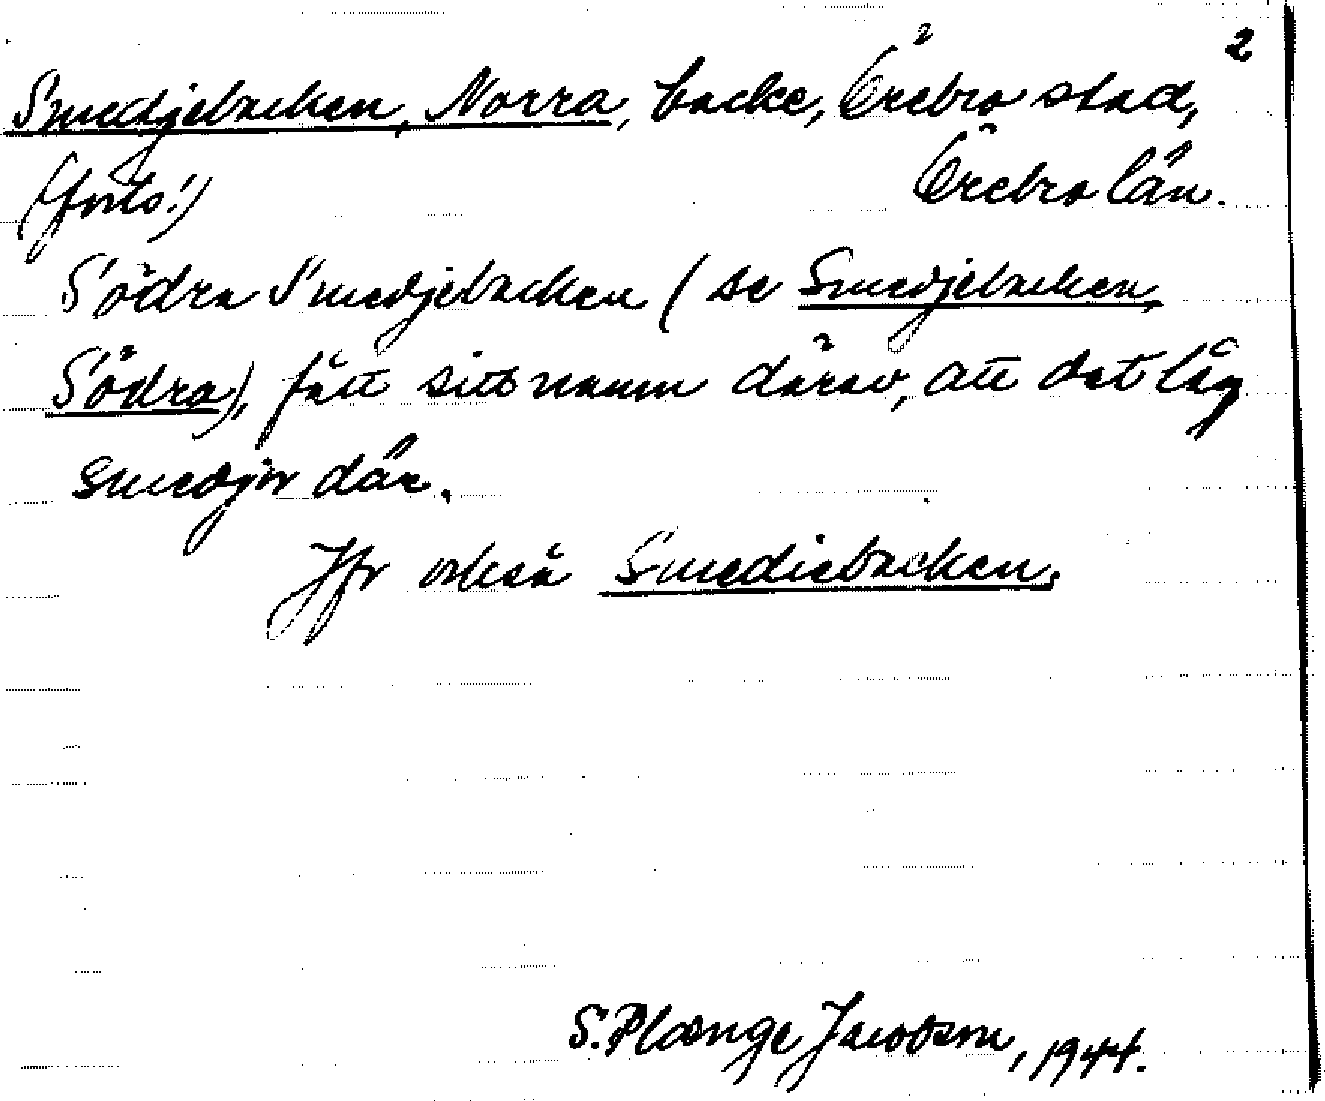 2
Smedjebacken, Norra, backe, Örebro stad,
(forts.) Örebro län.
Södra Smedjebacken (se Smedjebacken,
Södra), fått sitt namn därav, att det låg
smedjor där.
Jfr också Smediebacken.
S. Plænge Jacobson, 1944.